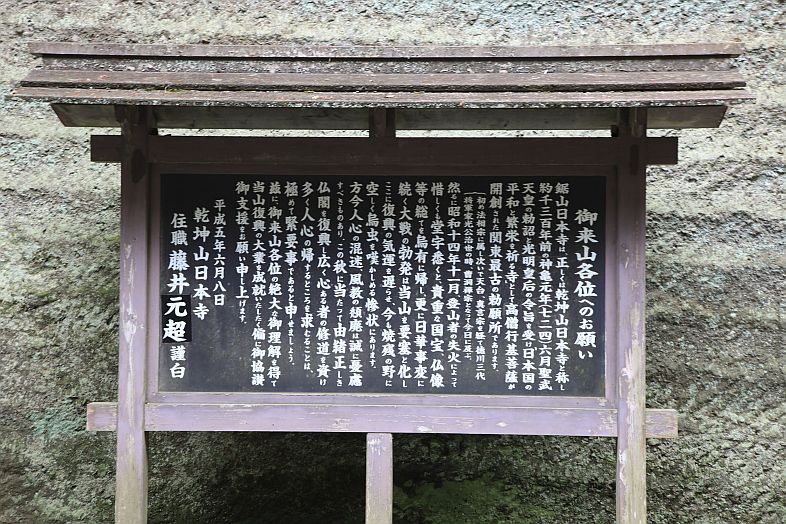 御来山各位へのお願い
鋸山日本寺は、正しくは乾坤山日本寺と称し
約千三百年前の神亀元年(七二四)六月聖武
天皇の勅詔と光明皇后の令旨を受け日本国の
平和と繁栄を祈る寺として高僧行基菩薩が
開創された関東最古の勅願所であります。
(初め法相宗に属し次いで天台、真言宗を経て徳川三代
将軍家光公治世の時、曹洞禅宗となって今日に及ぶ。)
然るに昭和十四年十一月登山者の失火によって
惜しくも堂宇悉くと貴重な国宝、仏像
等の総てを烏有に帰し、更に日華事変に
続く大戦の勃発は当山を要塞と化し
ここに復興の気運を遅らせ、今も焼残の野に
空しく烏虫を嘆かしめる惨状にあります。
方今人心の混迷、風教の頽廃は誠に憂慮
すべきものあり、この秋に当たって由緒正しき
仏閣を復興し広く心ある者の修道を資け
多く人心の帰するところを求むることは、
極めて緊要事であると申せましょう。
茲に、御来山各位の絶大な御理解を得て
当山復興の大業を成就いたしたく偏に御協讃
御支援をお願い申し上げます。
平成五年六月八日
乾坤山日本寺
住職 藤井元超 謹白